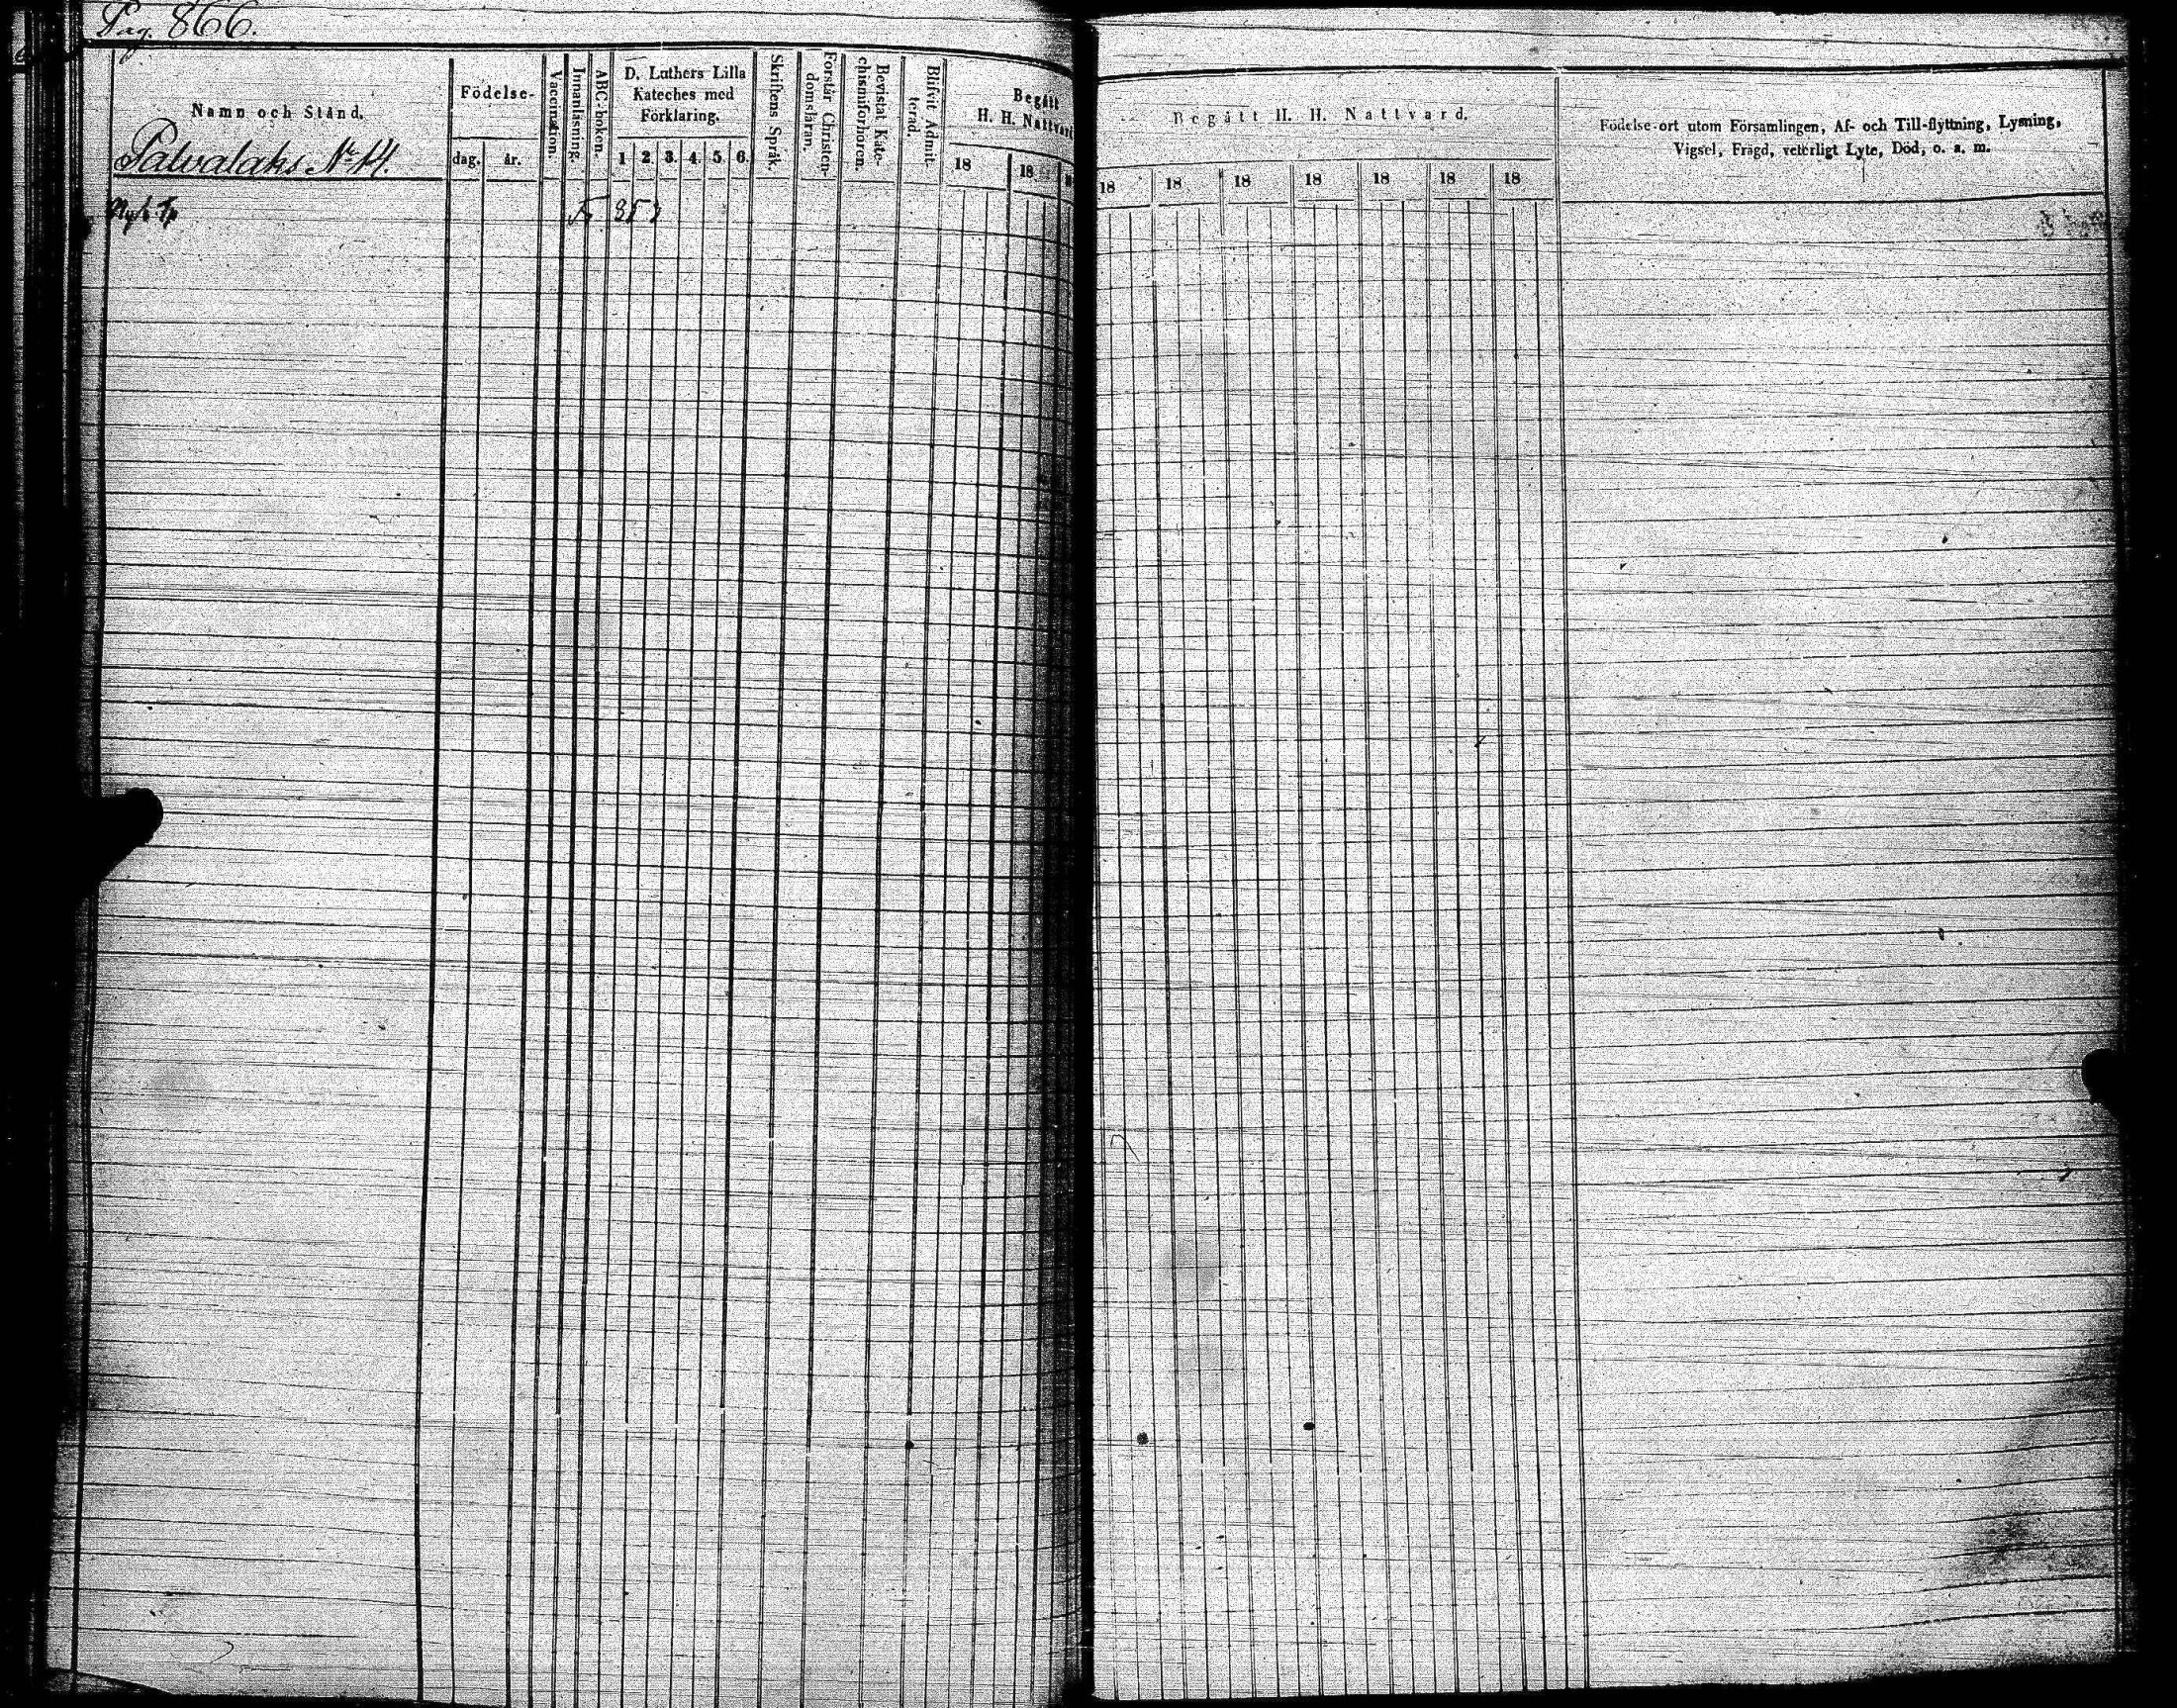 Pag. 866.
Namn och Stånd.
Palvalaks No 14.
Födelse-
dag. år.
Vaccination.
Innanläsning.
ABC-boken.
D. Luthers Lilla
Kateches med
Förklaring.
1 2. 3. 4. 5. 6.
Skriftens Språk.
Förstår Christen-
domsläran.
Bevistat Kate-
chismiförhören.
Blifvit Admit-
terad.
Begått
H. H. Nattvard
18 18
Begått H. H. Nattvard.
18 18 18 18 18 18 18
Födelse-ort utom Församlingen, Af- och Till-flyttning, Lysning,
Vigsel, Frägd, veterligt Lyte, Död, o. s. m.